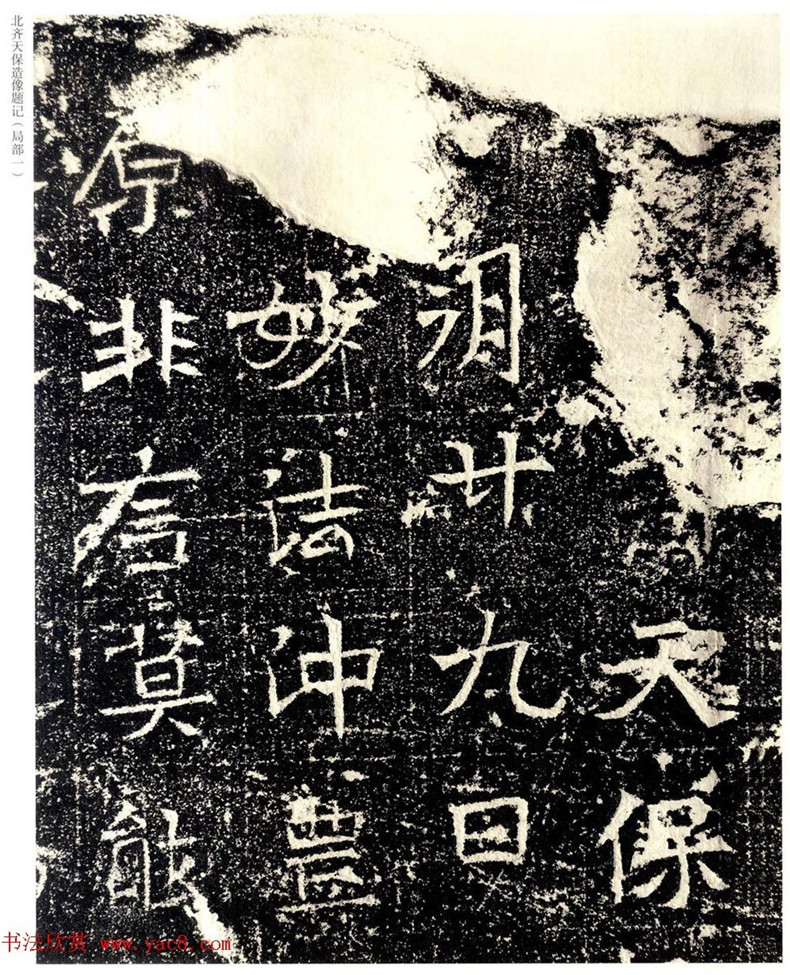 天保
月廿九日
妙法沖豊
非言莫能
北齐天保造像题记（局部一）
书法欣赏 www.yac8.com